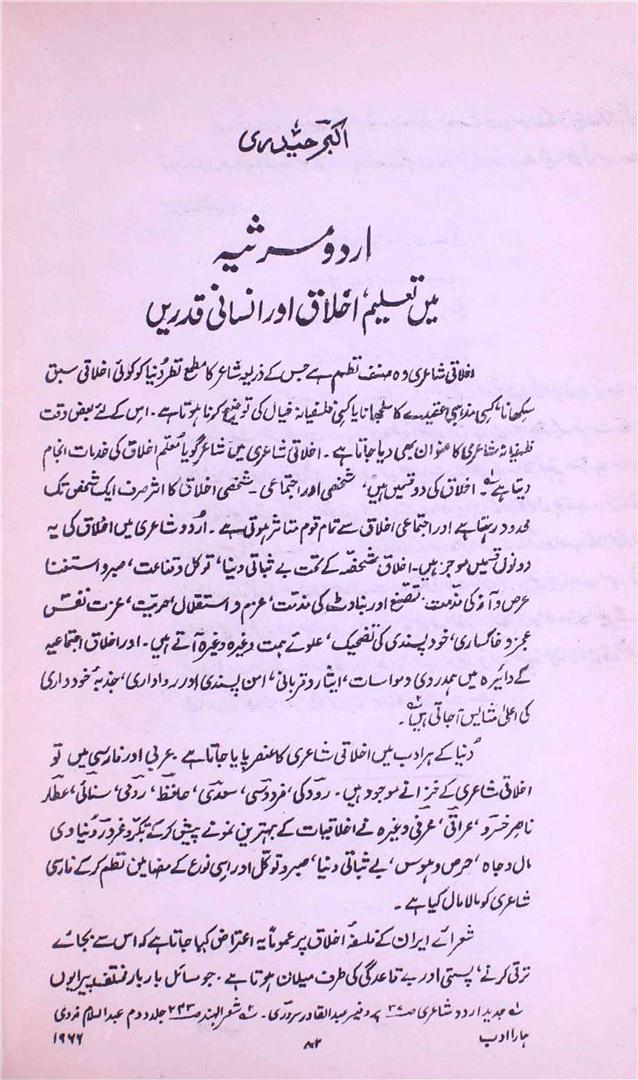 اکبر حیدری
اردو مرثیہ
میں تعلیم، اخلاق اور انسانی قدریں
اخلاقی شاعری وہ صنف نظم ہے جس کے ذریعہ شاعر کا مطمع نظر دُنیا کو کوئی اخلاقی سبق
سکھانا، کسی مذہبی عقیدے کا سمجھانا یا کسی فلسفیانہ خیال کی توضیح کرنا ہوتا ہے۔ اس کے لئے بعض وقت
فلسفیانہ شاعری کا عنوان بھی دیا جاتا ہے۔ اخلاقی شاعری میں شاعر گویا معلم اخلاق کی خدمات انجام
دیتا ہے۔ اخلاق کی دو قسمیں ہیں، شخصی اور اجتماعی۔ شخصی اخلاق کا اثر صرف ایک شخص تک
محدود رہتا ہے اور اجتماعی اخلاق سے تمام قوم متاثر ہوتی ہے۔ اردو شاعری میں اخلاق کی یہ
دونوں قسمیں موجود ہیں۔ اخلاق شخصیہ کے تحت بے ثباتی دنیا، توکل و قناعت، صبر و استغنا
حرص و آز کی مذمت، تصنع اور بناوٹ کی مذمت، عزم و استقلال، حریت، عزت نفس
عجز و خاکساری، خود پسندی کی تضحیک، علوئے ہمت وغیرہ وغیرہ آتے ہیں۔ اور اخلاق اجتماعیہ
کے دائرہ میں ہمدردی و مواسات، ایثار و قربانی، امن پسندی اور رواداری، جذبۂ خودداری
کی اعلیٰ مثالیں آجاتی ہیں۔
دُنیا کے ہر ادب میں اخلاقی شاعری کا عنصر پایا جاتا ہے۔ عربی اور فارسی میں تو
اخلاقی شاعری کے خزانے موجود ہیں۔ رودکی، فردوسی، سعدی، حافظ، رومی، سنائی، عطار
ناصر خسرو، عراقی، عرفی وغیرہ نے اخلاقیات کے بہترین نمونے پیش کرکے تکبر و غرور دُنیاوی
مال و جاہ، حرص و ہوس، بے ثباتی دنیا، صبر و توکل اور اسی نوع کے مضامین نظم کرکے فارسی
شاعری کو مالا مال کیا ہے۔
شعرائے ایران کے فلسفۂ اخلاق پر عموماً یہ اعتراض کہا جاتا ہے کہ اس سے بجائے
ترقی کرنے، پستی اور بے قاعدگی کی طرف میلان ہوتا ہے۔ جو مسائل بار بار مختلف پیرایوں
۱؎ جدید اردو شاعری ص۳۷ پروفیسر عبدالقادر سروری۔ ۲؎ شعرالہند ص۲۴۳ جلد دوم عبدالسلام ندوی
ہمارا ادب ۸۲ ۱۹۶۶